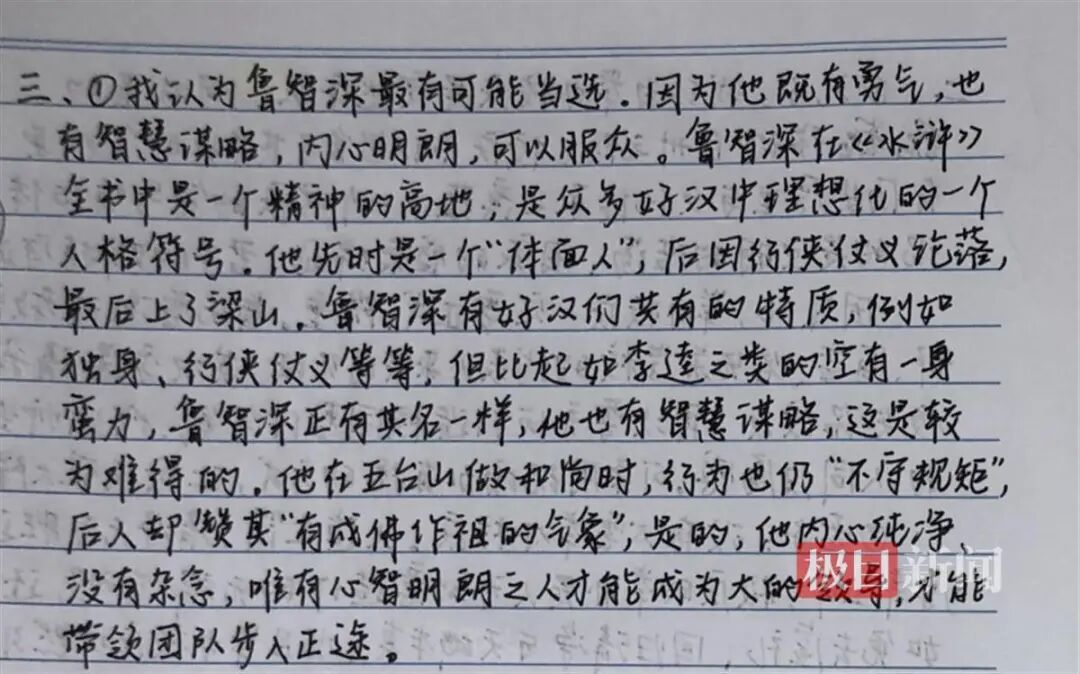 三、①我认为鲁智深最有可能当选。因为他既有勇气,也
有智慧谋略,内心明朗,可以服众。鲁智深在《水浒》
全书中是一个精神的高地,是众多好汉中理想化的一个
人格符号。他先时是一个“体面人”,后因行侠仗义沦落,
最后上了梁山。鲁智深有好汉们共有的特质,例如
独身、行侠仗义等等,但比起如李逵之类的空有一身
蛮力,鲁智深正有其名一样,他也有智慧谋略,这是较
为难得的。他在五台山做和尚时,行为也仍“不守规矩”,
后人却赞其“有成佛作祖的气象”,是的,他内心纯净、
没有杂念,唯有心智明朗之人才能成为大的领导,才能
带领团队步入正途。
极目新闻